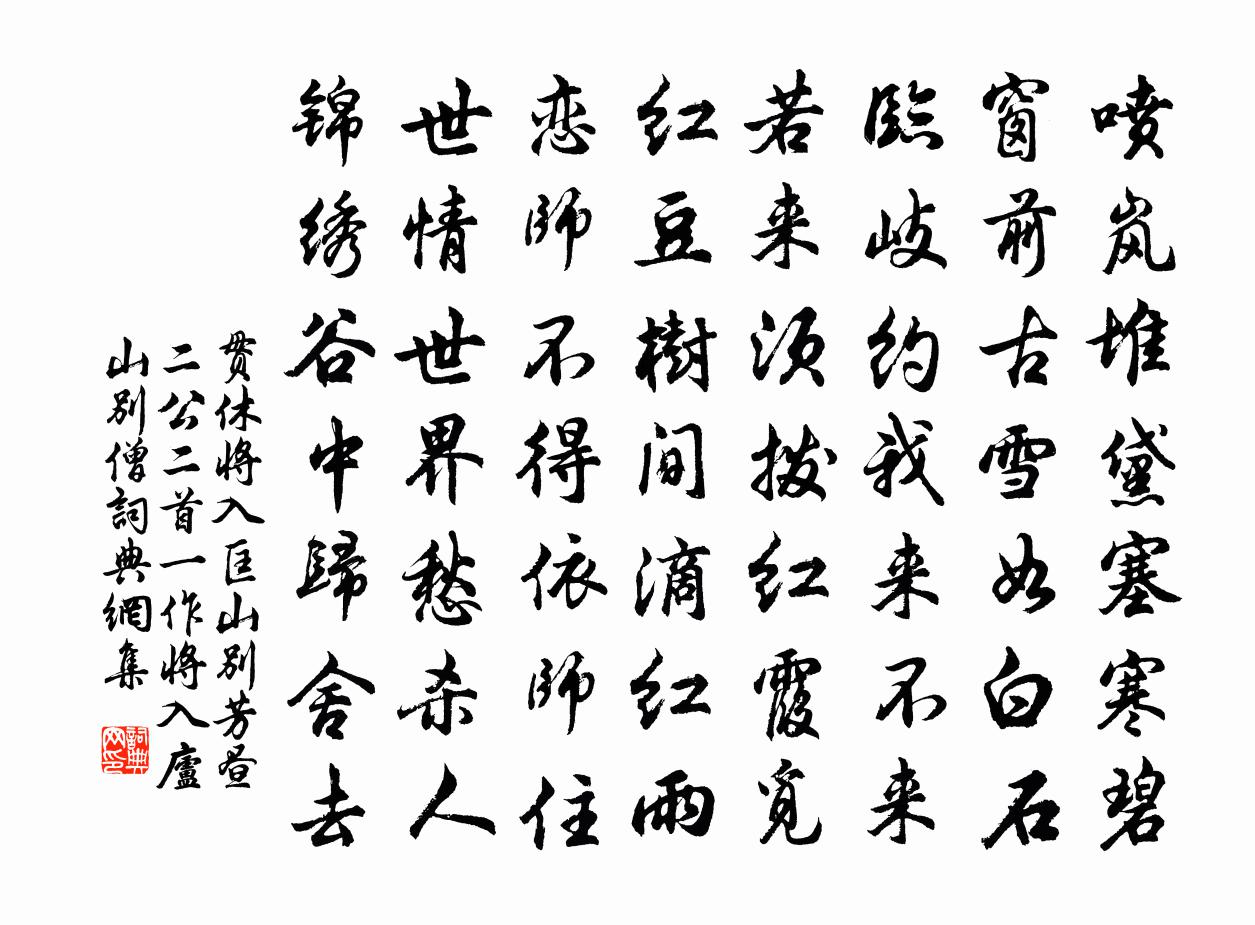 喷岚堆黛塞寒碧
窗前古雪如白石
臨岐约我来不来
若来须拨红霞觅
红豆樹间滴红雨
恋师不得依师住
世情世界愁杀人
锦绣谷中歸舍去
贯休将入匡山别芳昼
二公二首一作将入廬
山别僧詞典網集
詞典网印